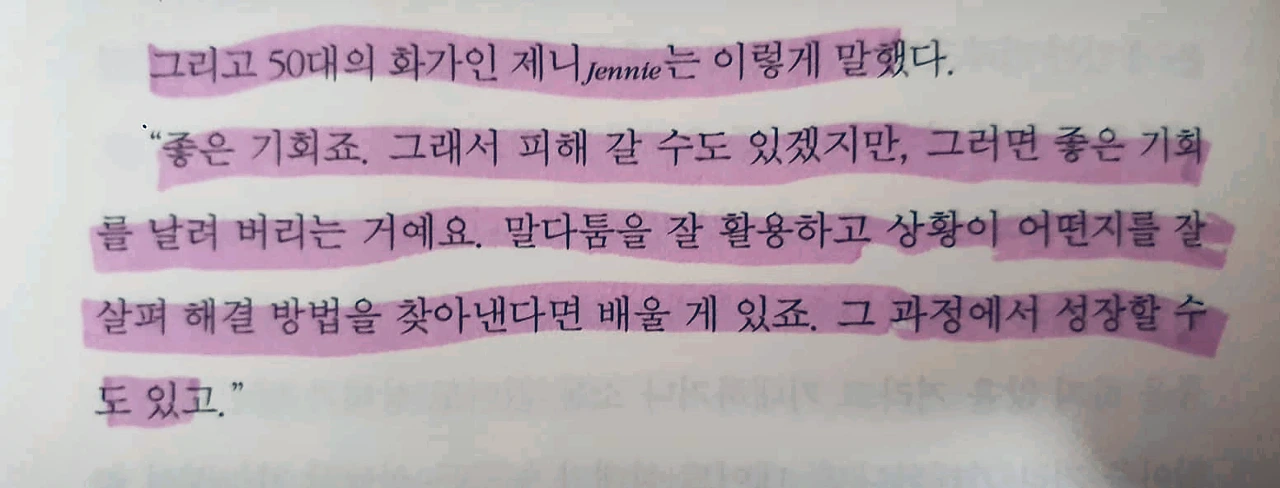 그리고 50대의 화가인 제니Jennie는 이렇게 말했다.
“좋은 기회죠. 그래서 피해 갈 수도 있겠지만, 그러면 좋은 기회
를 날려 버리는 거예요. 말다툼을 잘 활용하고 상황이 어떤지를 잘
살펴 해결 방법을 찾아낸다면 배울 게 있죠. 그 과정에서 성장할 수
도 있고.”